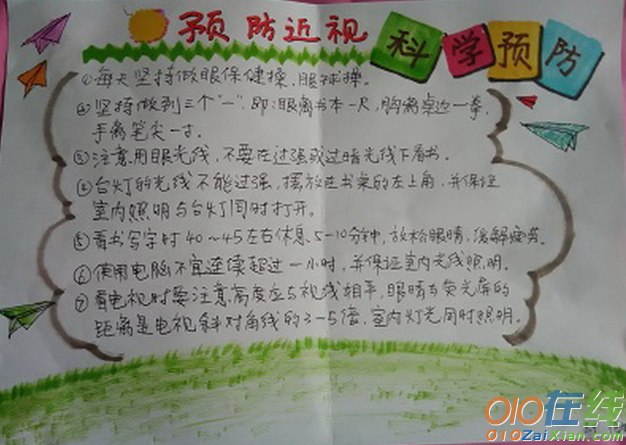 预防近视 科学预防
①每天坚持做眼保健操,眼球操。
②坚持做到三个"一",即:眼离书本一尺,胸离桌边一拳,
手离笔尖一寸。
③注意用眼光线,不要在过强或过暗光线下看书。
④台灯的光线不能过强,摆放在书桌的左上角,并保证
室内照明与台灯同时打开。
⑤看书写字时40~45左右休息5-10分钟,放松眼睛,缓解疲劳。
⑥使用电脑不宜连续超过一小时,并保证室内光线照明。
⑦看电视时要注意高度应与视线相平,眼睛与荧光屏的
距离是电视斜对角线的3-5倍,室内灯光同时照明。
010在线
010ZaiXian.com